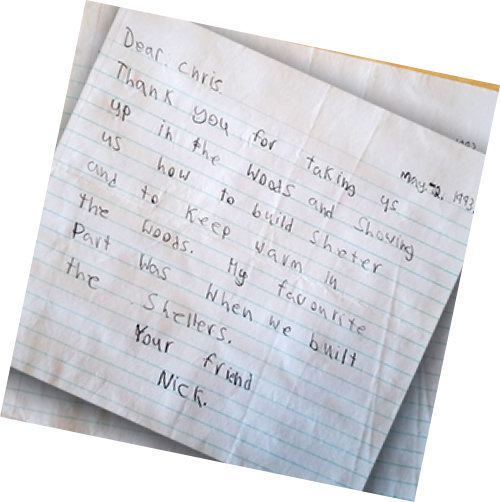 May 2, 1993.
Dear Chris
Thank you for taking us
up in the woods and showing
us how to build shelter
and to keep warm in
the woods. My favourite
part was when we built
the shelters.
Your friend
Nick.